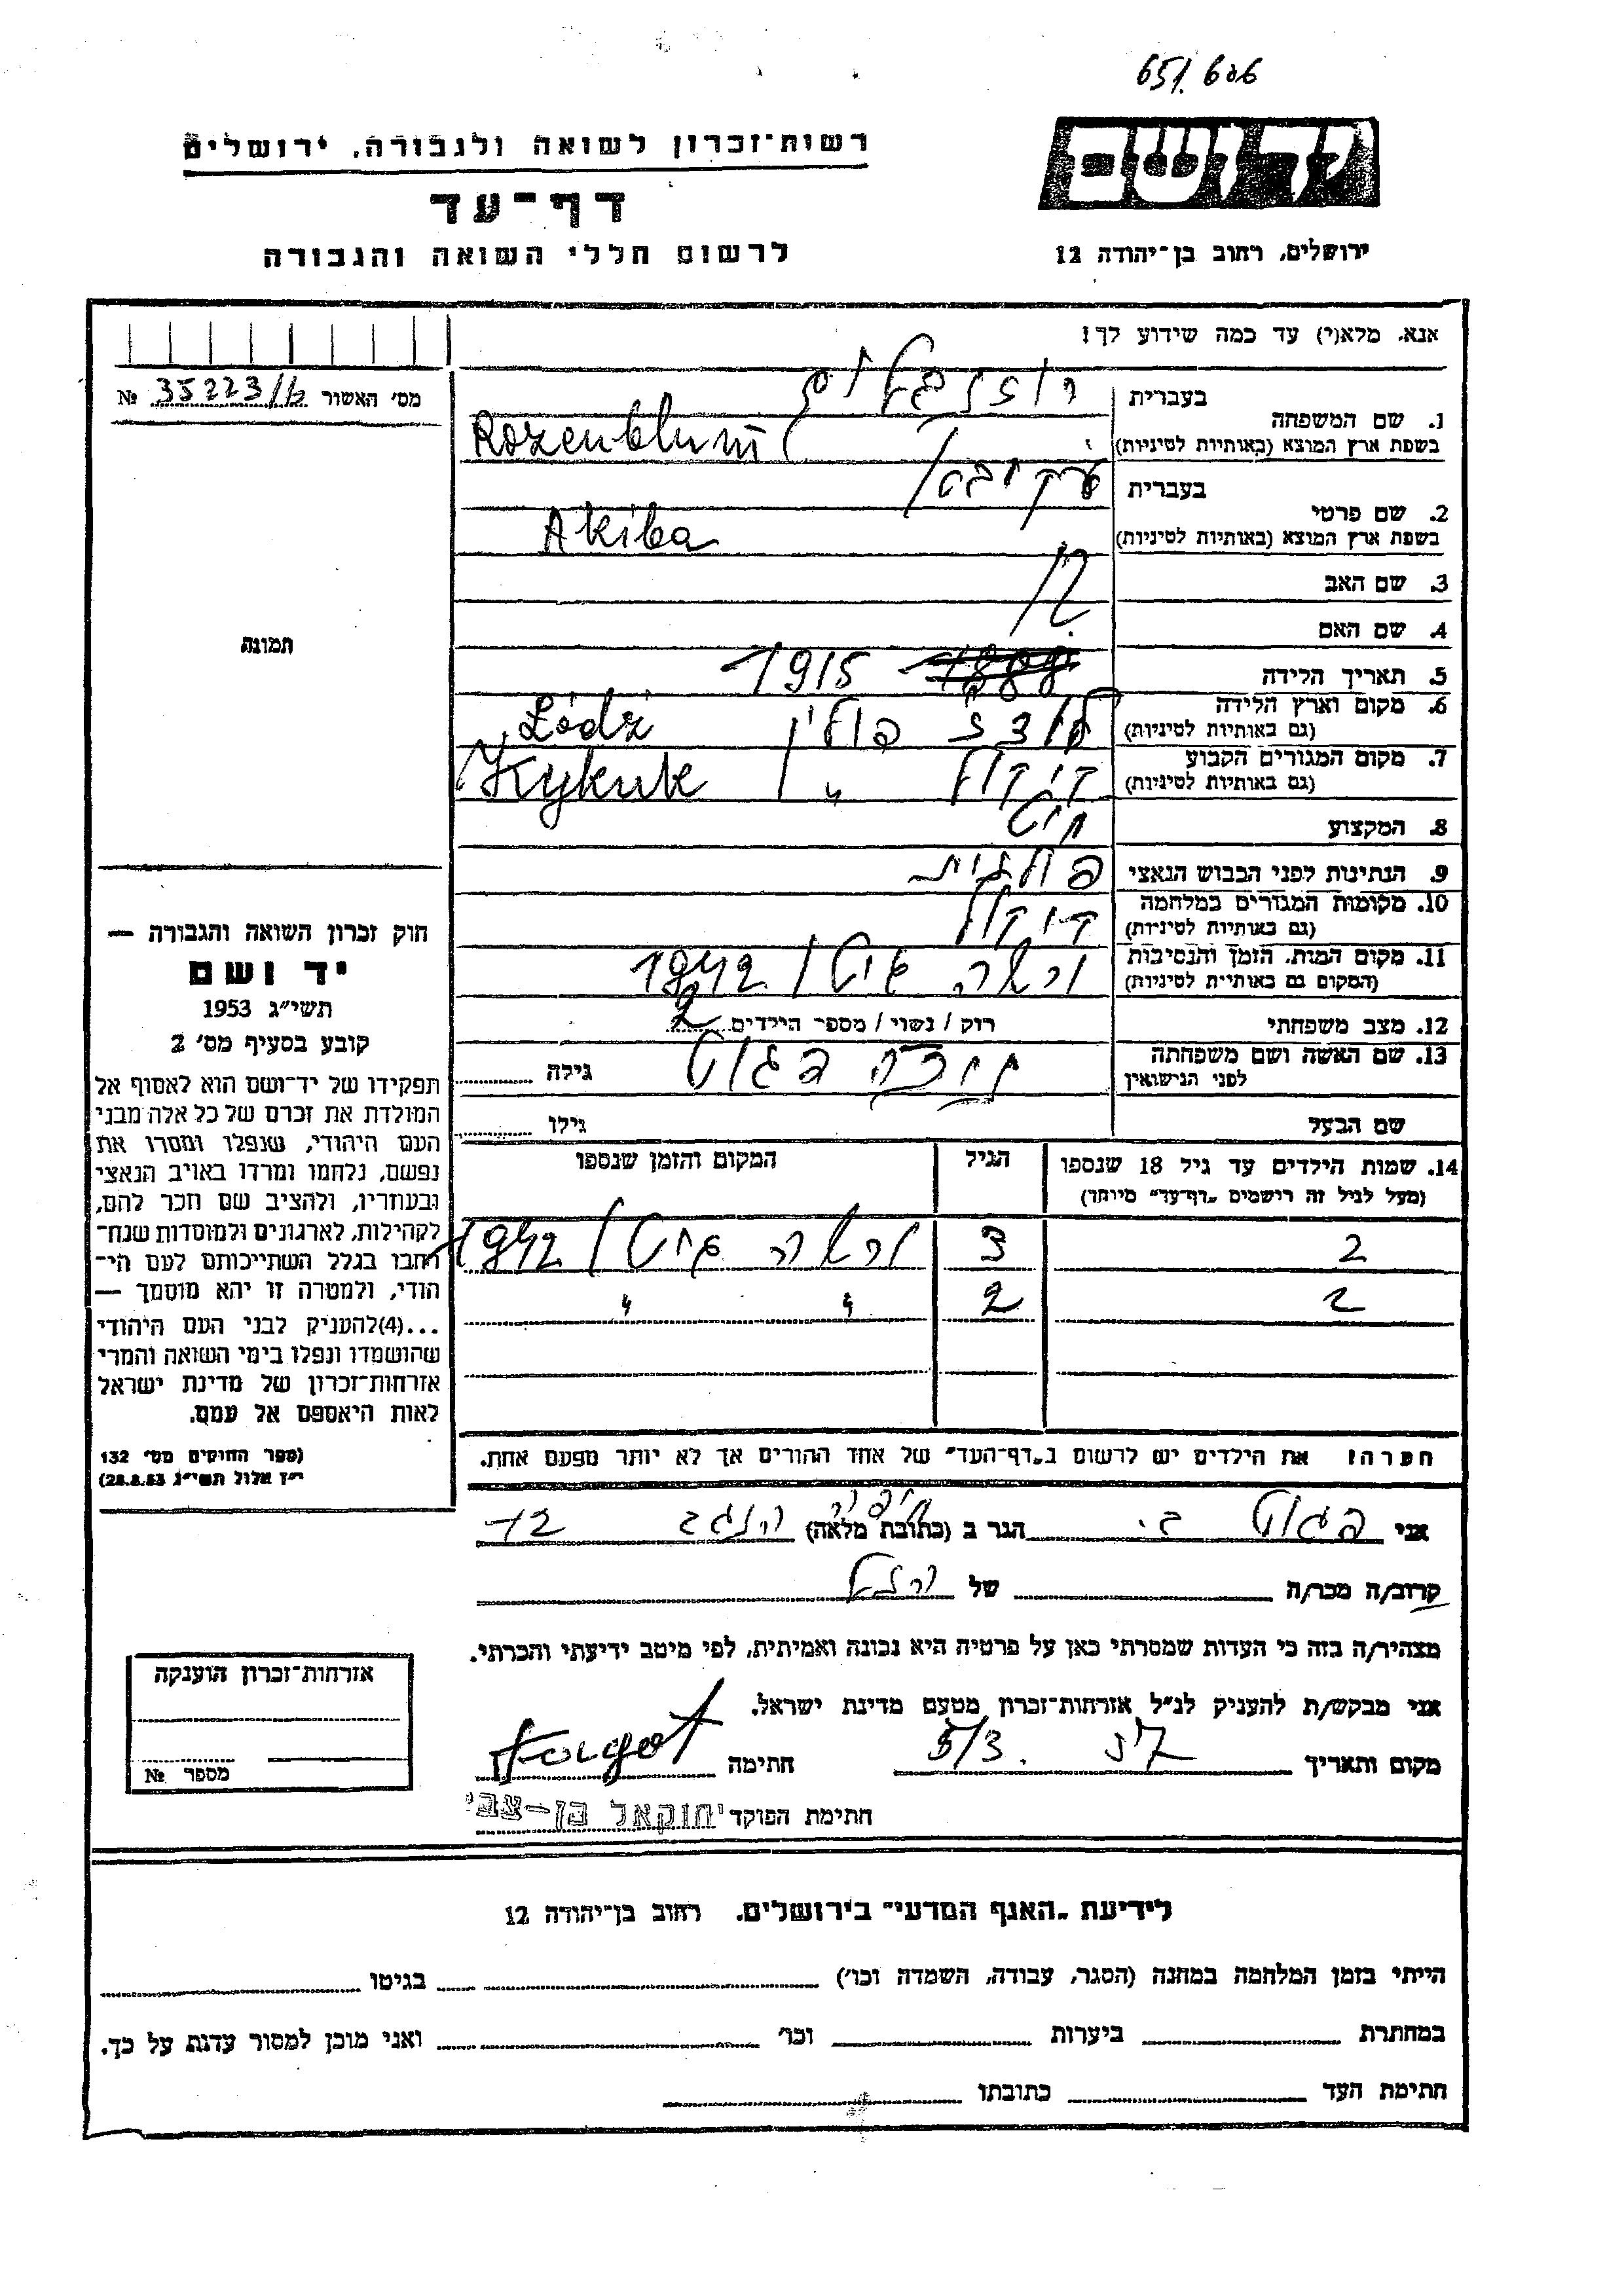 651.606
יד ושם
רשות־זכרון לשואה ולגבורה, ירושלים
דף־עד
לרשום חללי השואה והגבורה
ירושלים, רחוב בן־יהודה 12
אנא, מלא(י) עד כמה שידוע לך!
מס׳ האשור 35223/b №
1. שם המשפחה
בעברית רוזנבלום
בשפת ארץ המוצא (באותיות לטיניות) Rozenblum
2. שם פרטי
בעברית עקיבא
בשפת ארץ המוצא (באותיות לטיניות) Akiba
3. שם האב
4. שם האם
5. תאריך הלידה 1888 1915
6. מקום וארץ הלידה
(גם באותיות לטיניות) לודז פולין Łódź
7. מקום המגורים הקבוע
(גם באותיות לטיניות) " Kykuk
8. המקצוע
9. הנתינות לפני הכבוש הנאצי פולנית
10. מקומות המגורים במלחמה
(גם באותיות לטיניות)
11. מקום המות, הזמן והנסיבות
(המקום גם באותיות לטיניות) ורשה גיטו 1942
12. מצב משפחתי רווק / נשוי / מספר הילדים 2
13. שם האשה ושם משפחתה
לפני הנישואין פגוט גילה
שם הבעל גילו
14. שמות הילדים עד גיל 18 שנספו
(מעל לגיל זה רושמים „דף־עד״ מיוחד)
הגיל
המקום והזמן שנספו
2 3 ורשה גיטו 1942
2 2 " "
הערה! את הילדים יש לרשום ב„דף־העד״ של אחד ההורים אך לא יותר מפעם אחת.
תמונה
חוק זכרון השואה והגבורה —
יד ושם
תשי״ג 1953
קובע בסעיף מס׳ 2
תפקידו של יד־ושם הוא לאסוף אל
המולדת את זכרם של כל אלה מבני
העם היהודי, שנפלו ומסרו את
נפשם, נלחמו ומרדו באויב הנאצי
ובעוזריו, ולהציב שם וזכר להם,
לקהילות, לארגונים ולמוסדות שנח־
רבו בגלל השתייכותם לעם הי־
הודי, ולמטרה זו יהא מוסמך —
...(4)להעניק לבני העם היהודי
שהושמדו ונפלו בימי השואה והמרי
אזרחות־זכרון של מדינת ישראל
לאות היאספם אל עמם.
(ספר החוקים מס׳ 132
י״ז אלול תשי״ג 28.8.53)
אני פגוט ב. הגר ב (כתובת מלאה) חיפה הנגב 12
קרוב/ה מכר/ה של
מצהיר/ה בזה כי העדות שמסרתי כאן על פרטיה היא נכונה ואמיתית, לפי מיטב ידיעתי והכרתי.
אני מבקש/ת להעניק לנ״ל אזרחות־זכרון מטעם מדינת ישראל.
מקום ותאריך 5/3. חתימה Fagot
חתימת הפוקד יחזקאל בן-צבי
אזרחות־זכרון הוענקה
מספר №
לידיעת „האגף המדעי״ בירושלים, רחוב בן־יהודה 12
הייתי בזמן המלחמה במחנה (הסגר, עבודה, השמדה וכו׳) בגיטו
במחתרת ביערות וכו׳ ואני מוכן למסור עדות על כך.
חתימת העד כתובתו